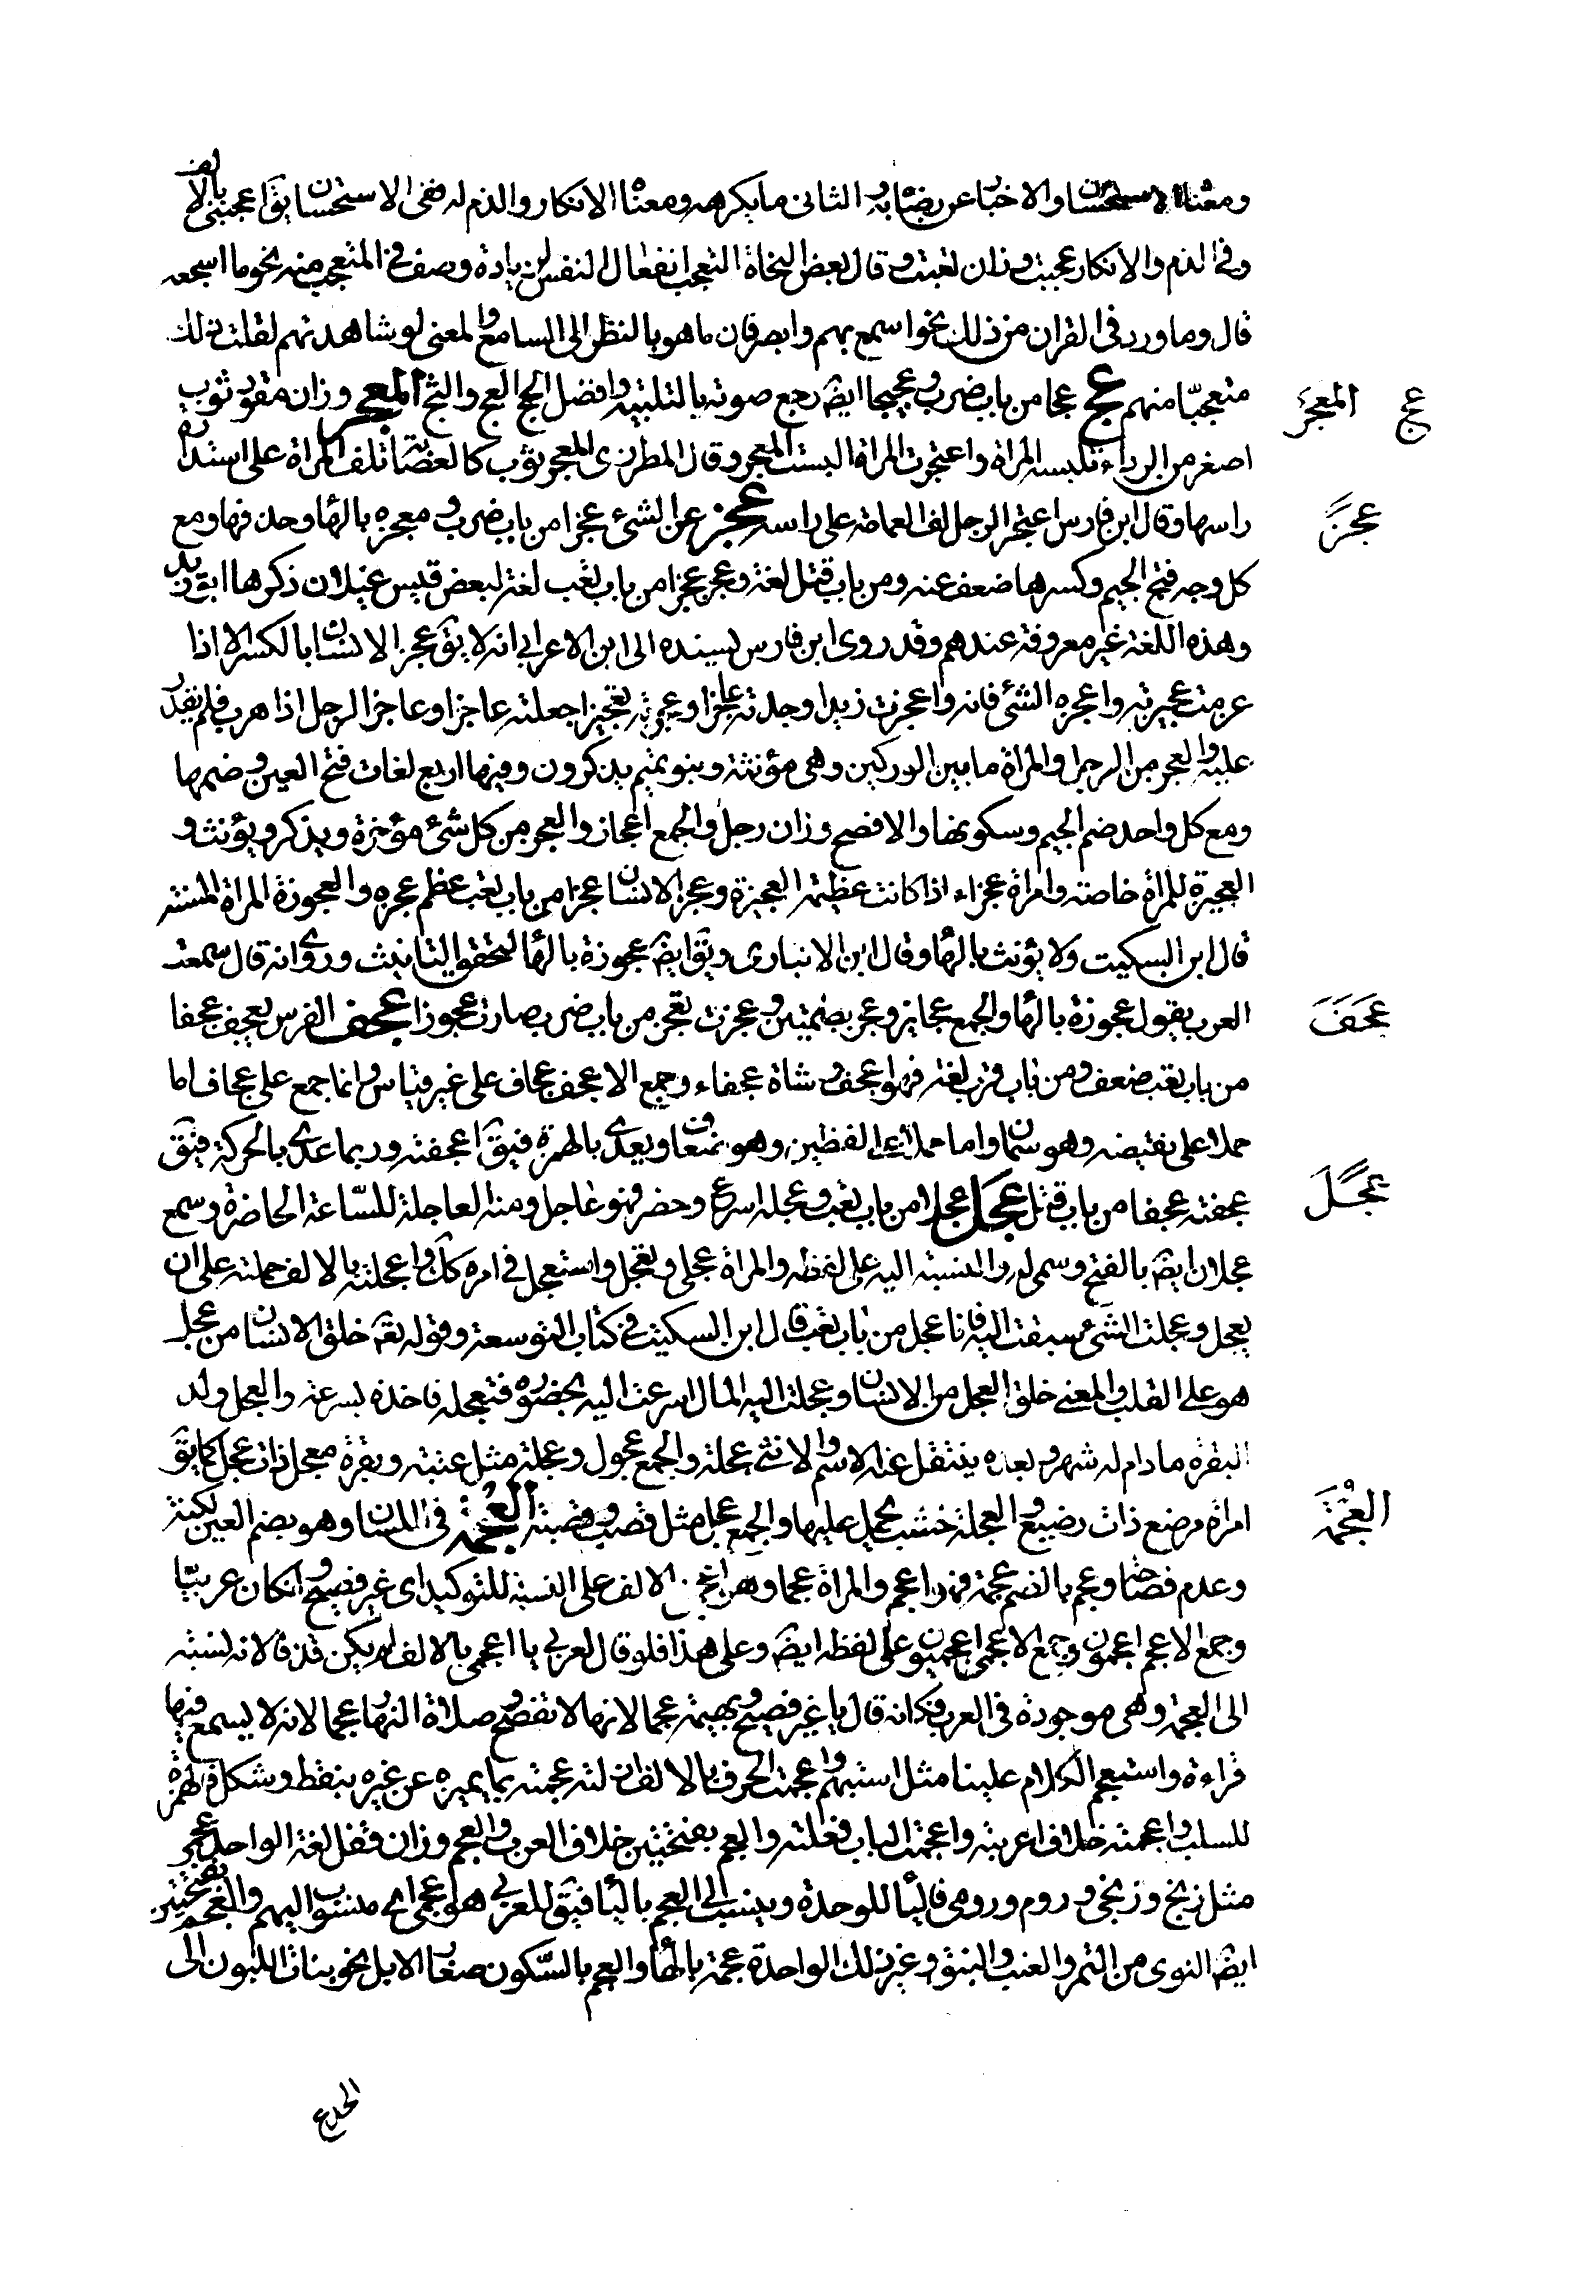 ومعناه الاستحسان والاخبار عن رضاه به والثانى ما يكرهه ومعناه الانكار والذم له ففى الاستحسان يقا اعجبنى بالالف
وفى الذم والانكار عجبت وزان تعبت وقال بعض النحاة التعجب انفعال النفس لزيادة وصف فى المتعجب منه نحو ما اشجعه
قال وما ورد فى القران من ذلك نحو اسمع بهم وابصر فان ما هو بالنظر الى السامع والمعنى لو شاهدتهم لقلت ذلك
متعجبا منهم عج عجا من باب ضرب وعجيجا ايضا رفع صوته بالتلبية وافضل الحج العج والثج المعجر وزان مقود ثوب
اصغر من الرداء تلبسه المراة واعتجرت المراة البست المعجر وقال المطرزى المعجر ثوب كالعصابة تلف المراة على استدارة
راسها وقال ابن فارس اعتجر الرجل لف العمامة على راسه عجز عن الشئ عجزا من باب ضرب ومعجزه بالهاء وحذفها ومع
كل وجه فتح الجيم وكسرها ضعف عنه ومن باب قتل لغة وعجز عجزا من باب تعب لغة لبعض قيس عيلان ذكرها ابو زيد
وهذه اللغة غير معروفة عندهم وقد روى ابن فارس بسنده الى ابن الاعرابى انه لا يقا عجز الانسان بالكسر الا اذا
عزمت عجيزته واعجزه الشئ فاته واعجزت زيدا وجدته عاجزا وعجزته تعجيزا جعلته عاجزا وعاجز الرجل اذا هرب فلم يقدر
عليه والعجز من الرجل والمراة ما بين الوركين وهى مؤنثة وبنو تميم يذكرون وفيها اربع لغات فتح العين وضمها
ومع كل واحد ضم الجيم وسكونها والافصح وزان رجل والجمع اعجاز والعجز من كل شئ مؤخره ويذكر ويؤنث و
العجيزة للمراة خاصة وامراة عجزاء اذا كانت عظيمة العجيزة وعجز الانسان عجزا من باب تعب عظم عجزه والعجوزة المراة المسنة
قال ابن السكيت ولا يؤنث بالهاء وقال ابن الانبارى ويقا ايضا عجوزة بالهاء لتحقق التانيث وروى انه قال سمعت
العرب يقول عجوزة بالهاء والجمع عجايز وعجز بضمتين وعجزت تعجز من باب ضرب صارت عجوزا عجف الفرس يعجف عجفا
من باب تعب ضعف ومن باب قرب لغة فهو اعجف وشاة عجفاء وجمع الاعجف عجاف على غير قياس وانما جمع على عجاف اما
حملا على نقيضه وهو سمان واما حملا على نظيره وهو ضعاف ويعدى بالهمزة فيقا اعجفته وربما عدى بالحركة فيقا
عجفته عجفا من باب قتل عجل عجلا من باب تعب وعجلة اسرع وحضر فهو عاجل ومنه العاجلة للساعة الحاضرة وسمع
عجلان ايضا بالفتح وسمى به والنسبة اليه على لفظه والمراة عجلى وتعجل واستعجل فى امره كذلك واعجلته بالالف حملته على ان
يعجل وعجلت الى الشئ سبقت اليه فانا عجل من باب تعب قال ابن السكيت فى كتاب التوسعة وقوله تعا خلق الانسان من عجل
هو على القلب والمعنى خلق العجل من الانسان وعجلت اليه المال اسرعت اليه بحضوره فتعجله فاخذه بسرعة والعجل ولد
البقرة ما دام له شهر وبعده ينتقل عنه الاسم والانثى عجلة والجمع عجول وعجلة مثل عنبة وبقرة معجل ذات عجل كما يقا
امراة مرضع ذات رضيع والعجلة خشب يحمل عليها والجمع عجل مثل قصب وقصبة العجمة فى اللسان وهو بضم العين لكنة
وعدم فصاحة وعجم بالضم عجمة فهو اعجم والمراة عجما وهو اعجمى بالالف على النسبة للتوكيد اى غير فصيح وان كان عربيا
وجمع الاعجم اعجمون وجمع الاعجمى اعجميون على لفظه ايضا وعلى هذا فلو قال لعربى يا اعجمى بالالف لم يكن قذفا لانه نسبة
الى العجمة وهى موجودة فى العرب فكانه قال يا غير فصيح وبهيمة عجما لانها لا تفصح وصلاة النهار عجما لانه لا يسمع فيها
قراءة واستعجم الكلام علينا مثل استبهم واعجمت الحرف بالالف ازلت عجمته بما يميزه عن غيره بنقط وشكل فالهمزة
للسلب واعجمته خلاف اعربته واعجمت الباب قفلته والعجم بفتحتين خلاف العرب والعجم وزان قفل لغة الواحد عجمى
مثل زنج وزنجى وروم ورومى فالياء للوحدة وينسب الى العجم بالياء فيقا للعربى هو عجمى اى منسوب اليهم والعجم بفتحتين
ايضا النوى من التمر والعنب والنبق وغير ذلك الواحدة عجمة بالهاء والعجم بالسكون صغار الابل نحو بنات اللبون الى
عج
المعجر
عجز
عجف
عجل
العجمة
الجذع